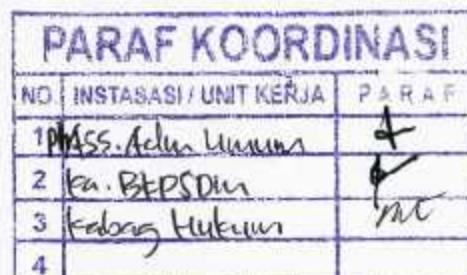 PARAF KOORDINASI
NO. INSTASASI / UNIT KERJA PARAF
1 Ass. Adm Umum
2 Ka. BKPSDM
3 Kabag Hukum
4